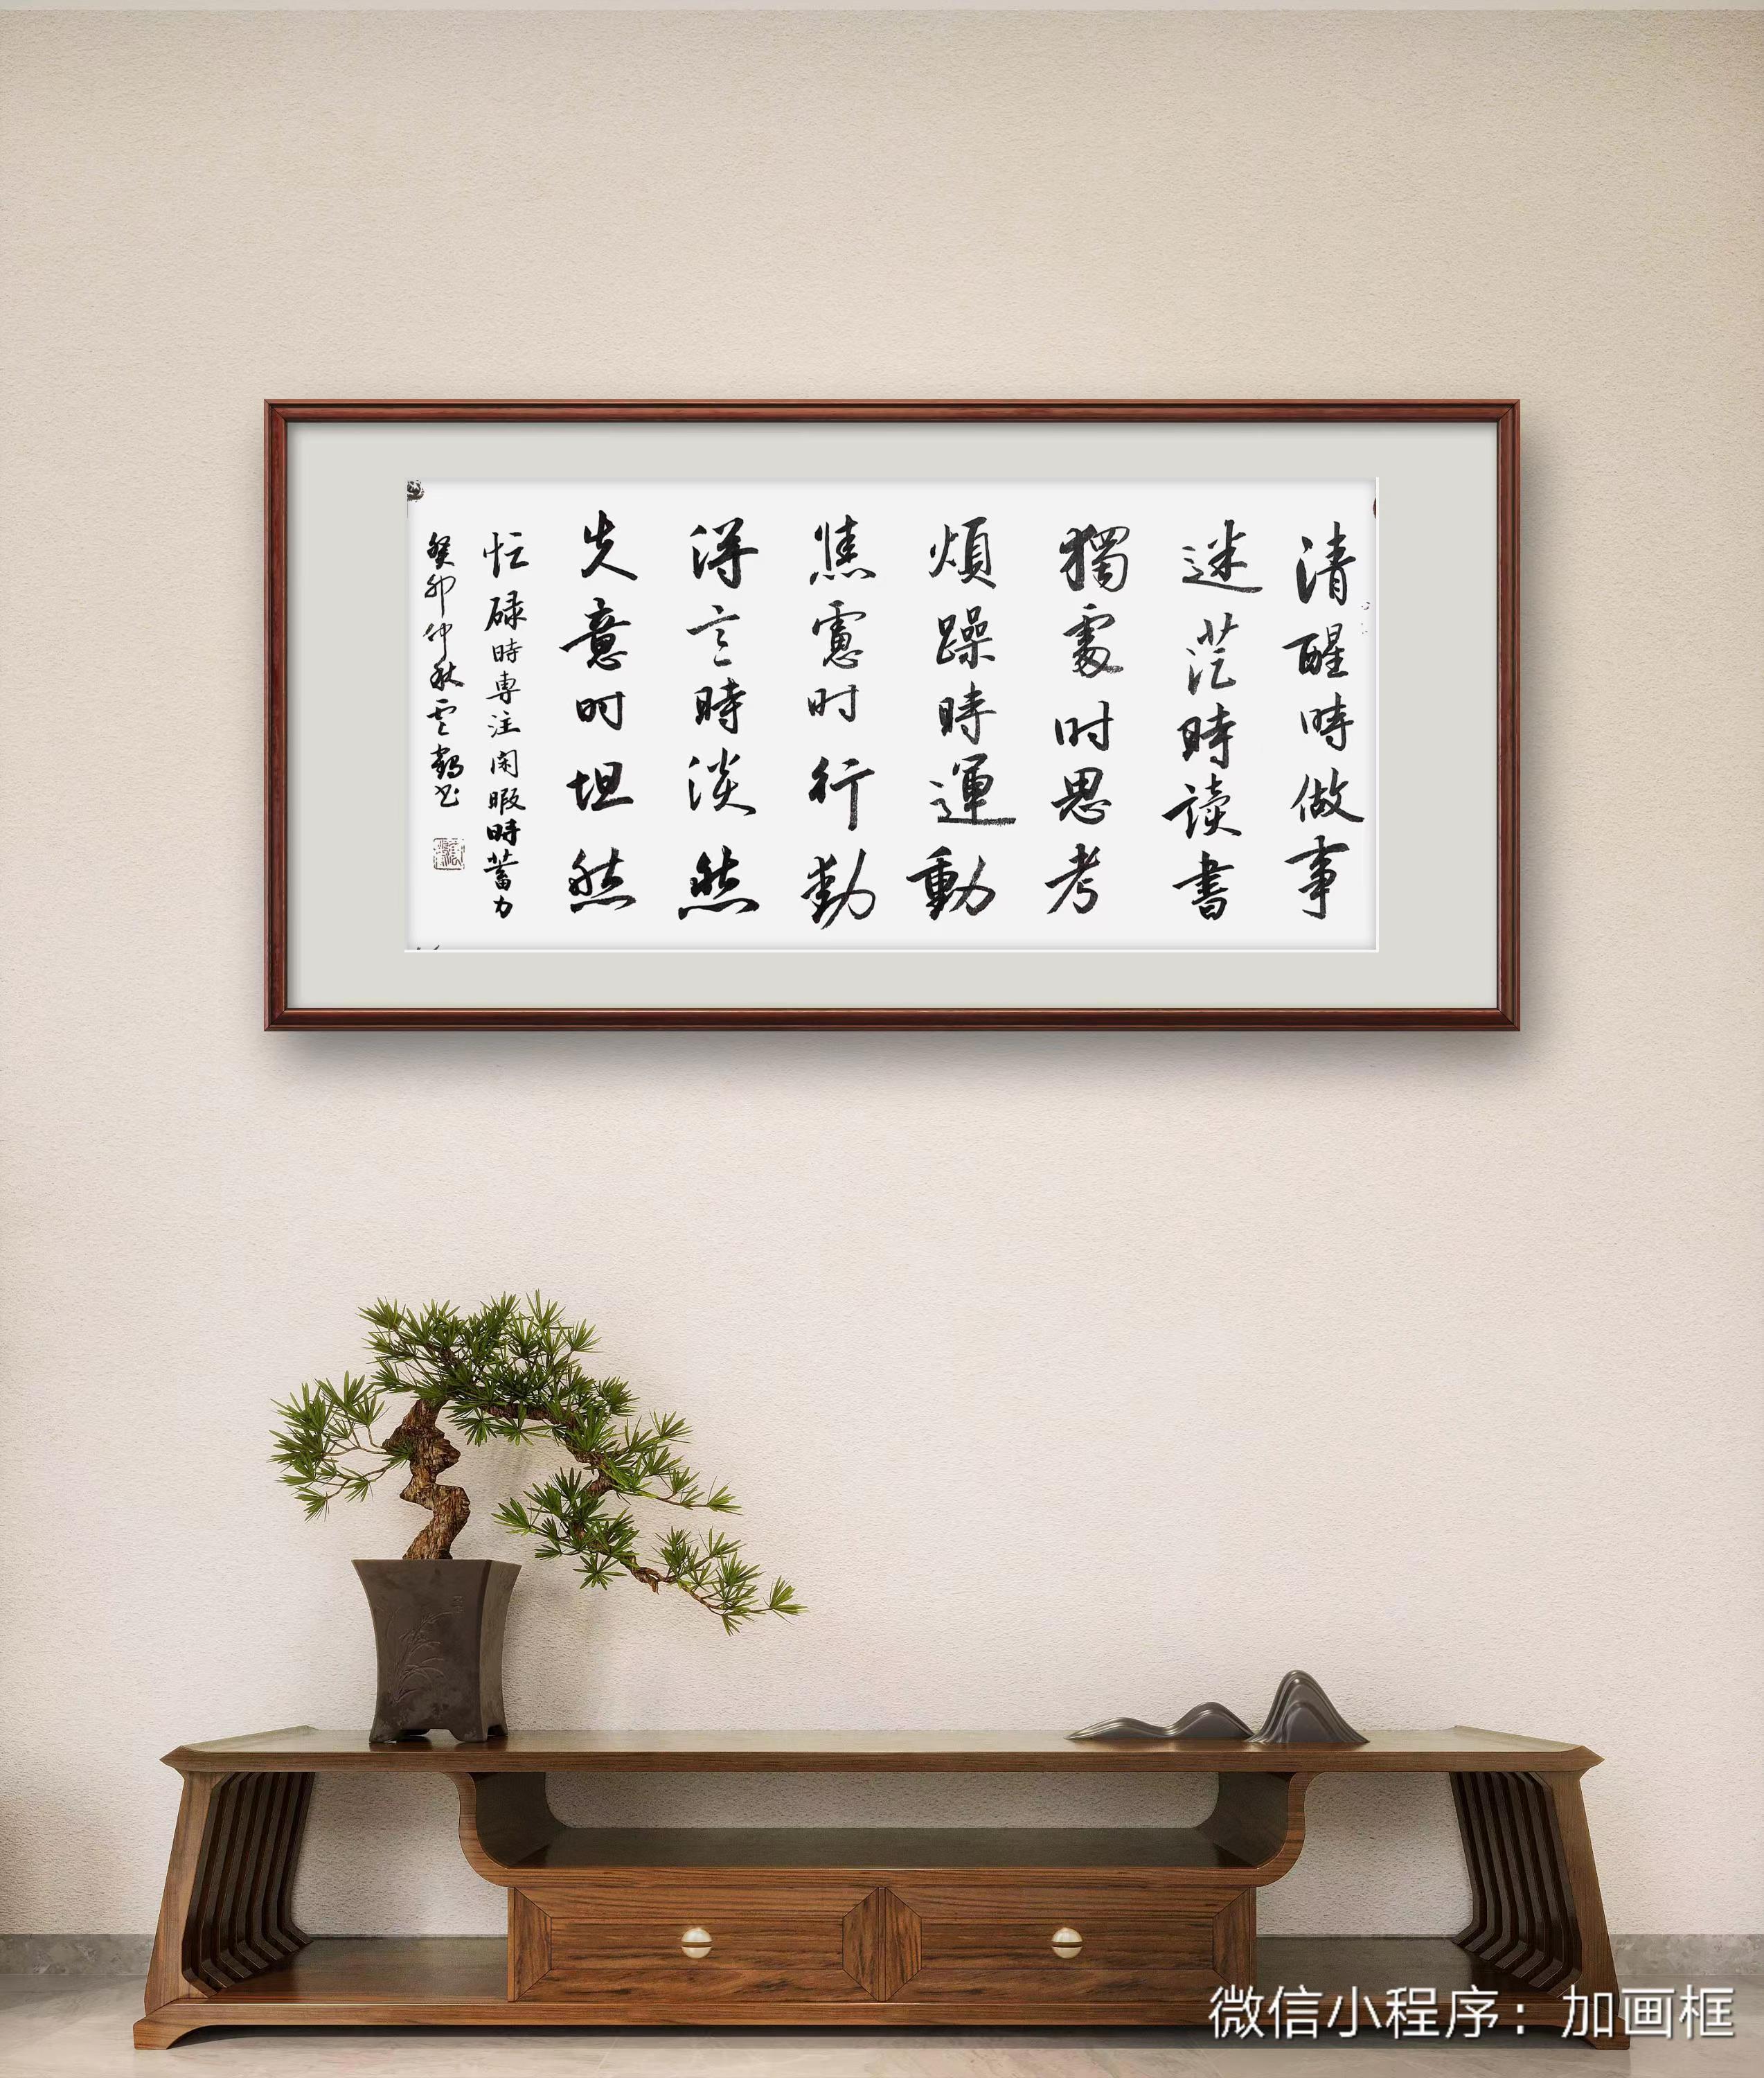 清醒時做事
迷茫時读書
獨處时思考
煩躁時運動
焦慮时行動
得意時淡然
失意时坦然
忙碌時専注闲暇時蓄力
癸卯仲秋云鹤书
微信小程序：加画框